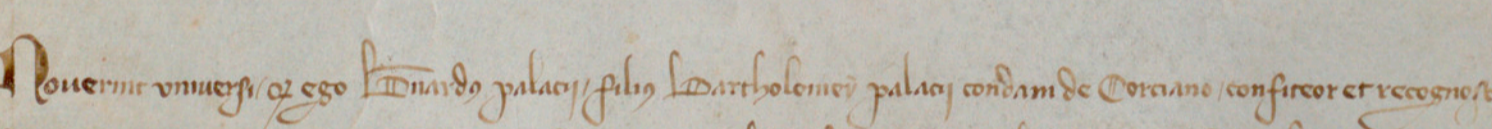 Noverint universi / qz ego Bn̄ardus palacii / filius Bartholomei palacii condam de Corciano / confiteor et recognosco